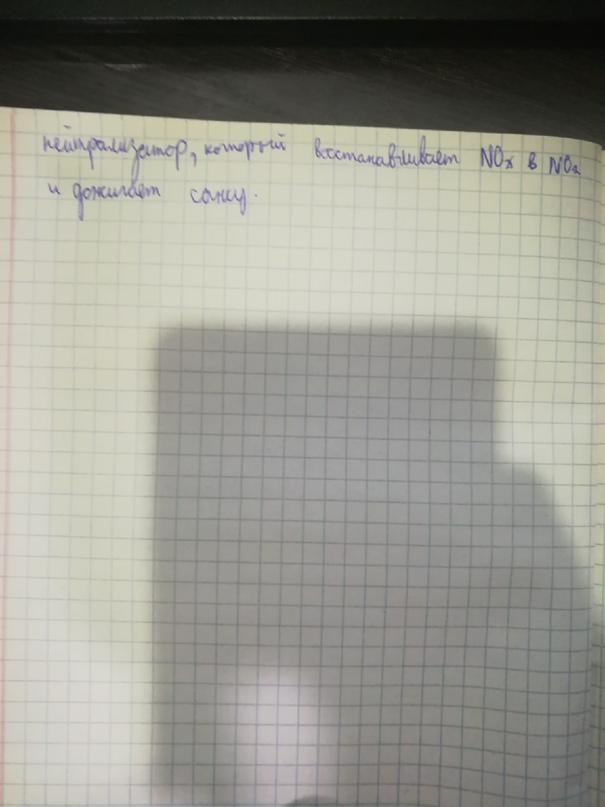 нейтрализатор, который восстанавливает NOx в NO2
и дожигает сажу.